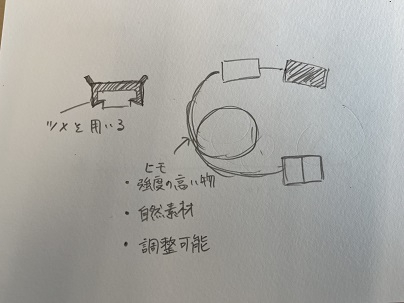 ツメを用いる
ヒモ
・強度の高い物
・自然素材
・調整可能